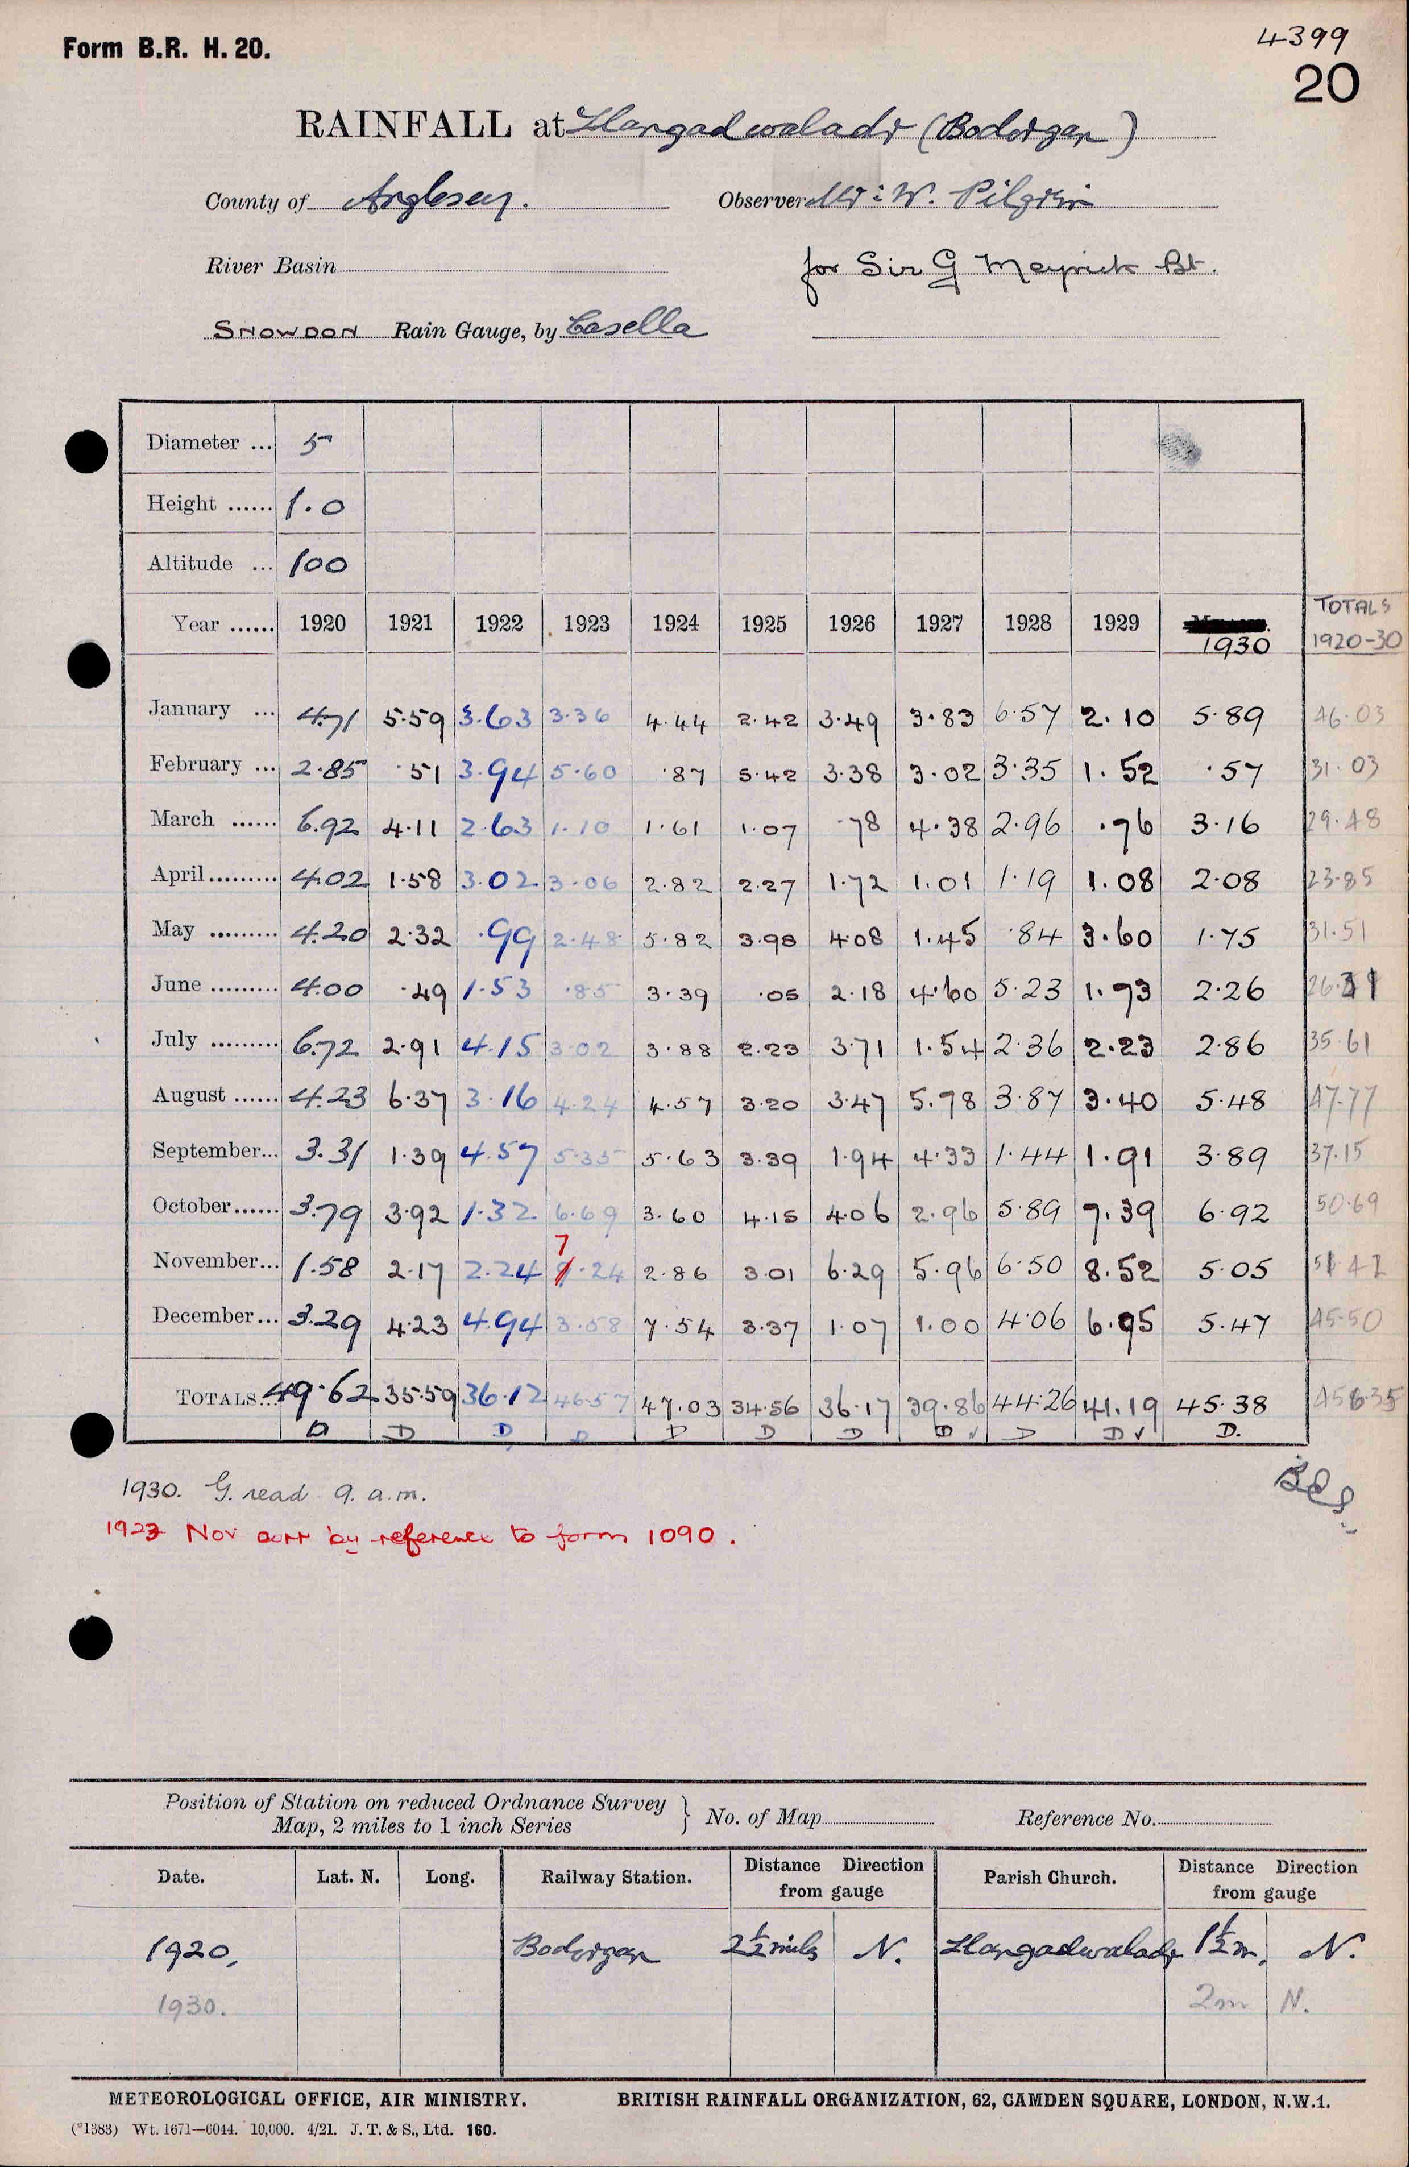 Form B.R. H. 20.
4399
20
RAINFALL at Llangadwaladr (Bodorgan)
County of Anglesey. Observer Mr. W. Pilgrim
River Basin for Sir G Meyrick Bt.
SNOWDON Rain Gauge, by Casella
Diameter ... 5
Height ...... 1.0
Altitude ... 100
Year ...... 1920 1921 1922 1923 1924 1925 1926 1927 1928 1929 1930 TOTALS 1920-30
January ... 4.71 5.59 3.63 3.36 4.44 2.42 3.49 3.83 6.57 2.10 5.89 46.03
February ... 2.85 .51 3.94 5.60 .87 5.42 3.38 3.02 3.35 1.52 .57 31.03
March ...... 6.92 4.11 2.63 1.10 1.61 1.07 .78 4.38 2.96 .76 3.16 29.48
April ......... 4.02 1.58 3.02 3.06 2.82 2.27 1.72 1.01 1.19 1.08 2.08 23.85
May ......... 4.20 2.32 .99 2.48 5.82 3.98 4.08 1.45 .84 3.60 1.75 31.51
June ......... 4.00 .49 1.53 .85 3.39 .05 2.18 4.60 5.23 1.73 2.26 26.31
July ......... 6.72 2.91 4.15 3.02 3.88 2.23 3.71 1.54 2.36 2.23 2.86 35.61
August ...... 4.23 6.37 3.16 4.24 4.57 3.20 3.47 5.78 3.87 3.40 5.48 47.77
September... 3.31 1.39 4.57 5.35 5.63 3.39 1.94 4.33 1.44 1.91 3.89 37.15
October...... 3.79 3.92 1.32 6.69 3.60 4.15 4.06 2.96 5.89 7.39 6.92 50.69
November... 1.58 2.17 2.24 7.24 2.86 3.01 6.29 5.96 6.50 8.52 5.05 51.42
December... 3.29 4.23 4.94 3.58 7.54 3.37 1.07 1.00 4.06 6.95 5.47 45.50
TOTALS... 49.62 35.59 36.12 46.57 47.03 34.56 36.17 39.86 44.26 41.19 45.38 456.35
D D D D D D D D ✓ D D ✓ D.
1930. G. read 9. a.m.
1923 Nov corr by reference to form 1090.
Position of Station on reduced Ordnance Survey
Map, 2 miles to 1 inch Series } No. of Map Reference No.
Date. Lat. N. Long. Railway Station. Distance Direction from gauge Parish Church. Distance Direction from gauge
1920, Bodorgan 2½ miles N. Llangadwaladr 1½ m. N.
1930. 2m N.
METEOROLOGICAL OFFICE, AIR MINISTRY. BRITISH RAINFALL ORGANIZATION, 62, CAMDEN SQUARE, LONDON, N.W.1.
(*1383) Wt. 1671—6044. 10,000. 4/21. J. T. & S., Ltd. 160.